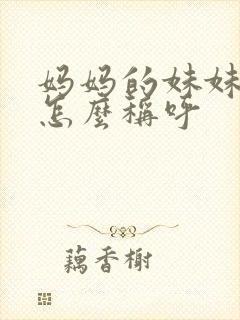 妈妈的妹妹
怎麼稱呼
藕香榭